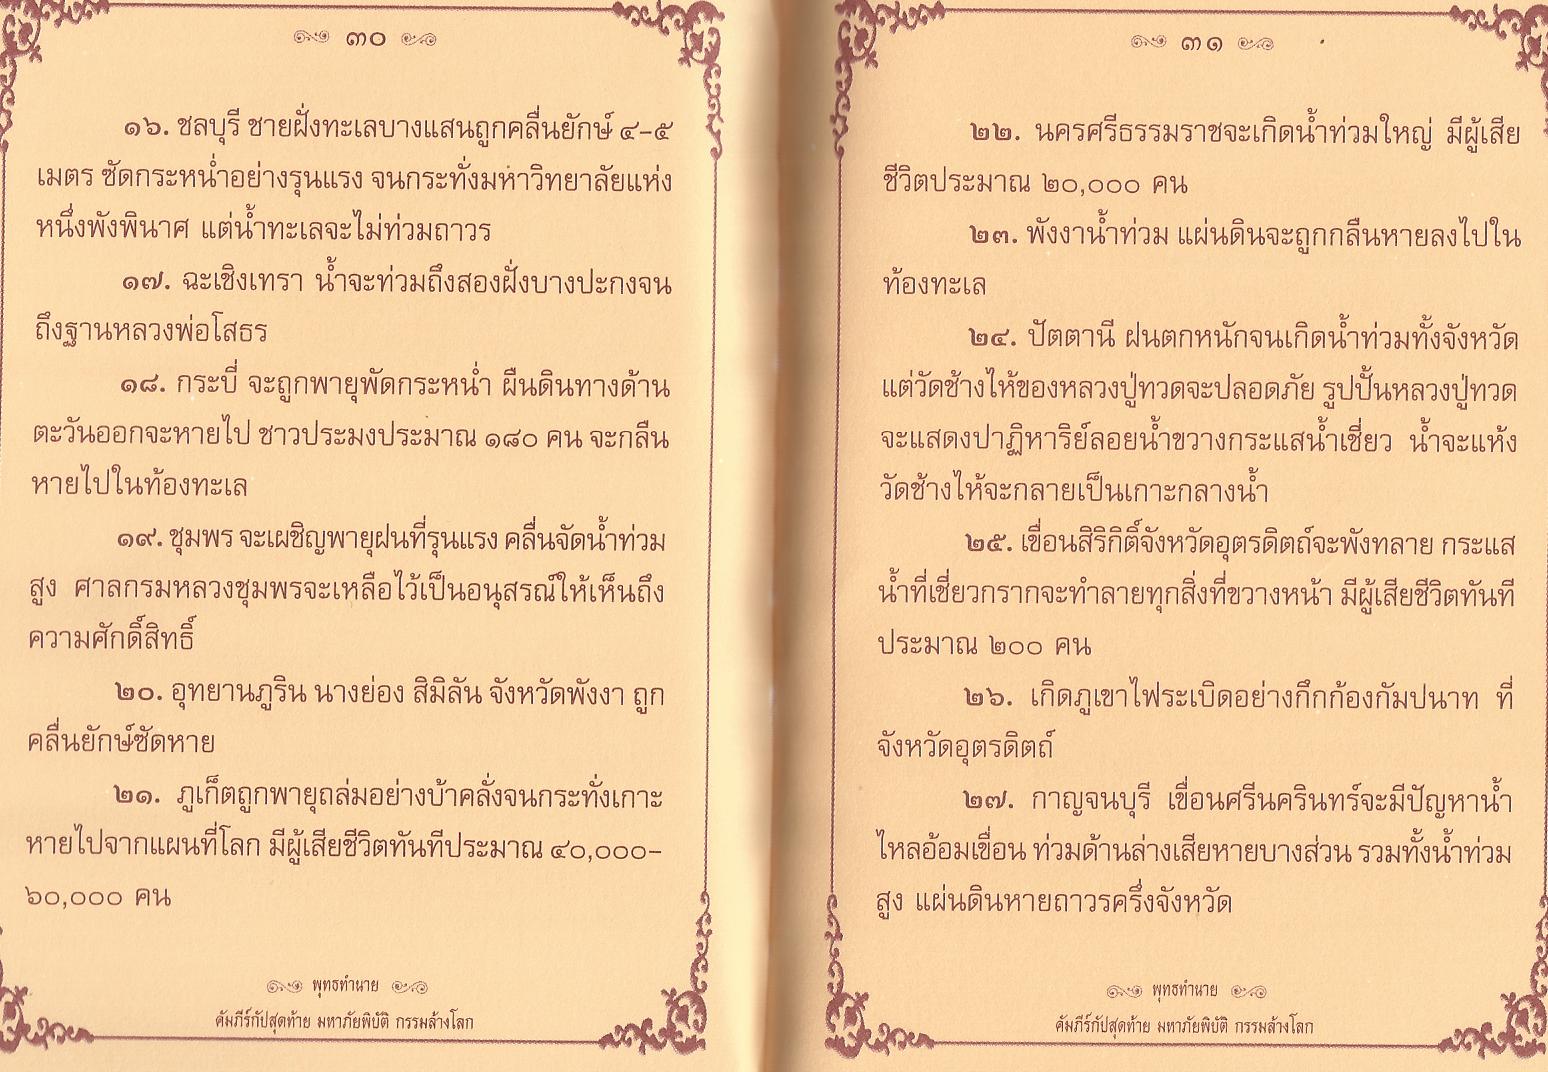 ๓๐
๑๖. ชลบุรี ชายฝั่งทะเลบางแสนถูกคลื่นยักษ์ ๔-๕
เมตร ซัดกระหน่ำอย่างรุนแรง จนกระทั่งมหาวิทยาลัยแห่ง
หนึ่งพังพินาศ แต่น้ำทะเลจะไม่ท่วมถาวร
๑๗. ฉะเชิงเทรา น้ำจะท่วมถึงสองฝั่งบางปะกงจน
ถึงฐานหลวงพ่อโสธร
๑๘. กระบี่ จะถูกพายุพัดกระหน่ำ ผืนดินทางด้าน
ตะวันออกจะหายไป ชาวประมงประมาณ ๑๘๐ คน จะกลืน
หายไปในท้องทะเล
๑๙. ชุมพร จะเผชิญพายุฝนที่รุนแรง คลื่นจัดน้ำท่วม
สูง ศาลกรมหลวงชุมพรจะเหลือไว้เป็นอนุสรณ์ให้เห็นถึง
ความศักดิ์สิทธิ์
๒๐. อุทยานภูริน นางย่อง สิมิลัน จังหวัดพังงา ถูก
คลื่นยักษ์ซัดหาย
๒๑. ภูเก็ตถูกพายุถล่มอย่างบ้าคลั่งจนกระทั่งเกาะ
หายไปจากแผนที่โลก มีผู้เสียชีวิตทันทีประมาณ ๔๐,๐๐๐-
๖๐,๐๐๐ คน
พุทธทำนาย
คัมภีร์กัปสุดท้าย มหาภัยพิบัติ กรรมล้างโลก
๓๑
๒๒. นครศรีธรรมราชจะเกิดน้ำท่วมใหญ่ มีผู้เสีย
ชีวิตประมาณ ๒๐,๐๐๐ คน
๒๓. พังงาน้ำท่วม แผ่นดินจะถูกกลืนหายลงไปใน
ท้องทะเล
๒๔. ปัตตานี ฝนตกหนักจนเกิดน้ำท่วมทั้งจังหวัด
แต่วัดช้างไห้ของหลวงปู่ทวดจะปลอดภัย รูปปั้นหลวงปู่ทวด
จะแสดงปาฏิหาริย์ลอยน้ำขวางกระแสน้ำเชี่ยว น้ำจะแห้ง
วัดช้างไห้จะกลายเป็นเกาะกลางน้ำ
๒๕. เขื่อนสิริกิติ์จังหวัดอุตรดิตถ์จะพังทลาย กระแส
น้ำที่เชี่ยวกรากจะทำลายทุกสิ่งที่ขวางหน้า มีผู้เสียชีวิตทันที
ประมาณ ๒๐๐ คน
๒๖. เกิดภูเขาไฟระเบิดอย่างกึกก้องกัมปนาท ที่
จังหวัดอุตรดิตถ์
๒๗. กาญจนบุรี เขื่อนศรีนครินทร์จะมีปัญหาน้ำ
ไหลอ้อมเขื่อน ท่วมด้านล่างเสียหายบางส่วน รวมทั้งน้ำท่วม
สูง แผ่นดินหายถาวรครึ่งจังหวัด
พุทธทำนาย
คัมภีร์กัปสุดท้าย มหาภัยพิบัติ กรรมล้างโลก